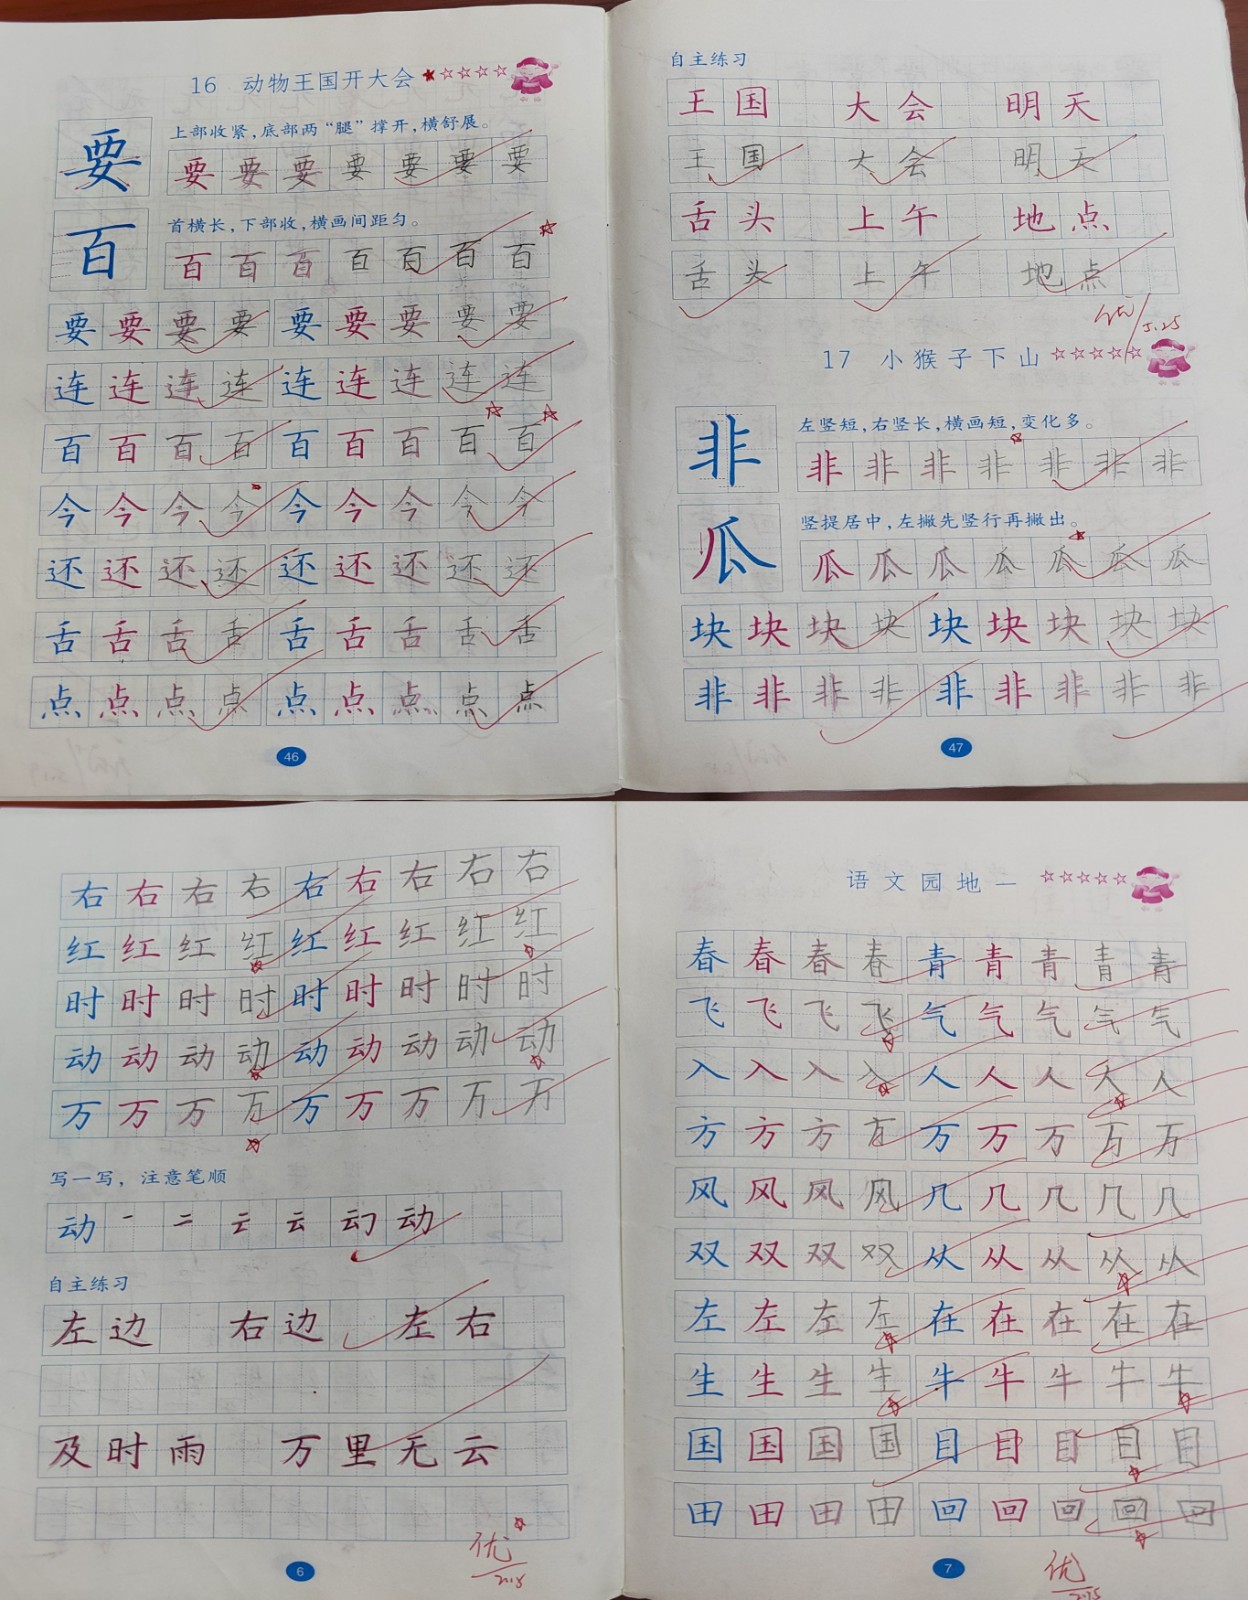 16 动物王国开大会
要
上部收紧,底部两“腿”撑开,横舒展。
要要要要要要要
百
首横长,下部收,横画间距匀。
百百百百百百百
要要要要 要要要要要
连连连连 连连连连连
百百百百 百百百百百
今今今今 今今今今今
还还还还 还还还还还
舌舌舌舌 舌舌舌舌舌
点点点点 点点点点点
46
自主练习
王国 大会 明天
王国 大会 明天
舌头 上午 地点
舌头 上午 地点
优/5.25
17 小猴子下山
非
左竖短,右竖长,横画短,变化多。
非非非非非非非
瓜
竖提居中,左撇先竖行再撇出。
瓜瓜瓜瓜瓜瓜瓜
块块块块 块块块块块
非非非非 非非非非非
47
右右右右 右右右右右
红红红红 红红红红红
时时时时 时时时时时
动动动动 动动动动动
万万万万 万万万万万
写一写，注意笔顺
动 一 二 云 云 动 动
自主练习
左边 右边 左右
及时雨 万里无云
优
6
语文园地一
春春春春 青青青青青
飞飞飞飞 气气气气气
入入入入 人人人大人
方方方方 万万万万万
风风风风 几几几几几
双双双双 从从从从从
左左左左 在在在在在
生生生生 牛牛牛牛牛
国国国国 目目目目目
田田田田 回回回回回
优
7